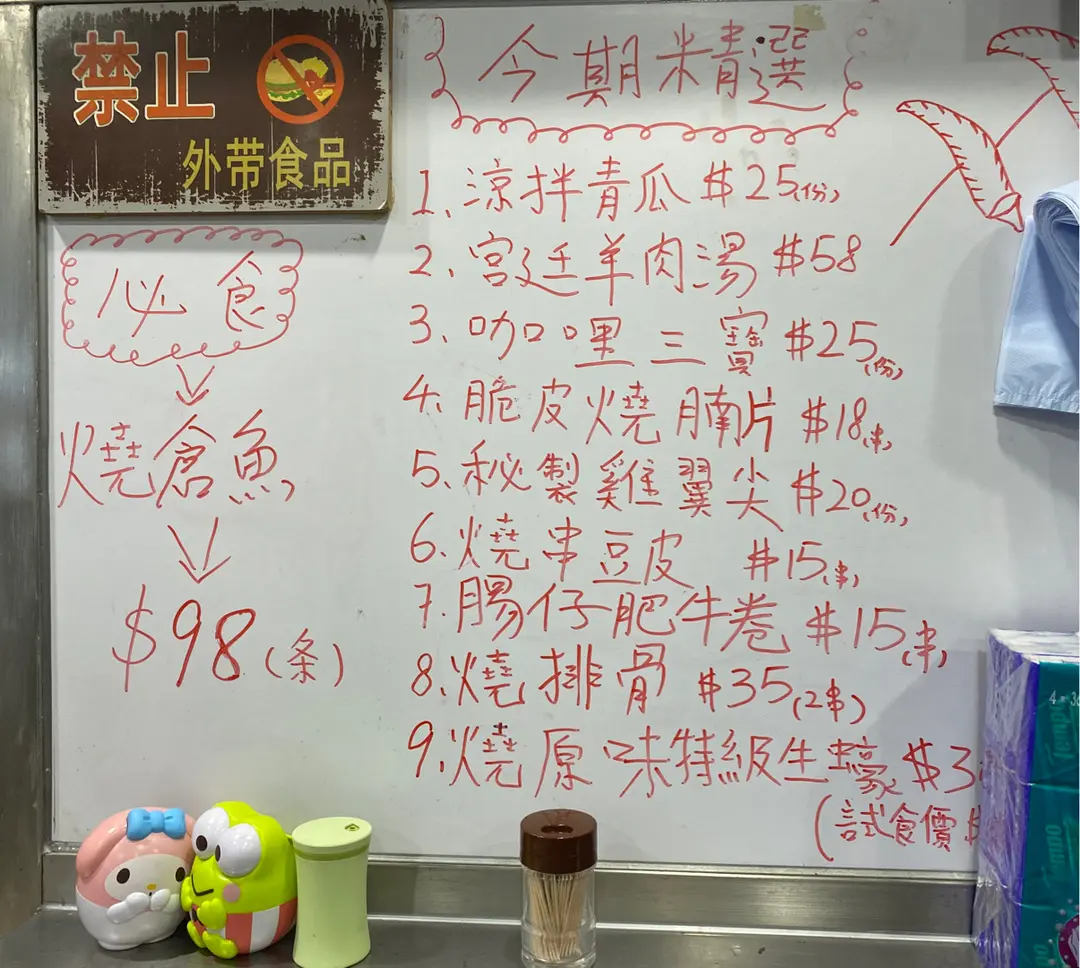 禁止
外带食品
今期精選
1、涼拌青瓜 $25(份)
2、宮廷羊肉湯 $58
3、咖哩三寶 $25(份)
4、脆皮燒腩片 $18(串)
5、秘製雞翼尖 $20(份)
6、燒串豆皮 $15(串)
7、腸仔肥牛卷 $15(串)
8、燒排骨 $35(2串)
9、燒原味特級生蠔 $3
(試食價 $
必食
燒倉魚
$98(条)
Tempo